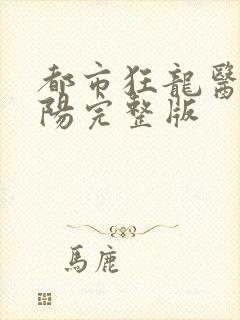 都市狂龍醫
陽完整版
馬鹿